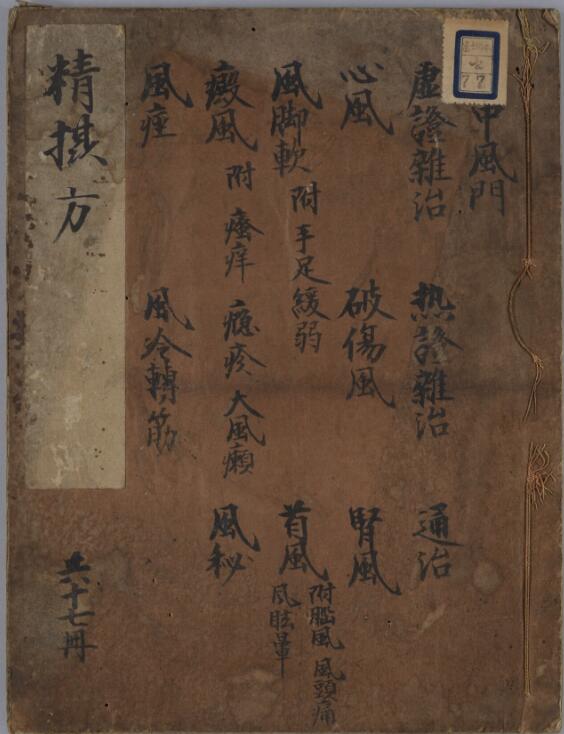 中風門
虛證雜治 热證雜治 通治
心風 破傷風 腎風
風脚軟 附手足緩弱 首風 附腦風 風頭痛
風眩暈
癜風 附 瘙痒 癮疹 大風癩 風秘
風痓 風冷轉筋
精揀方
共十七冊
77